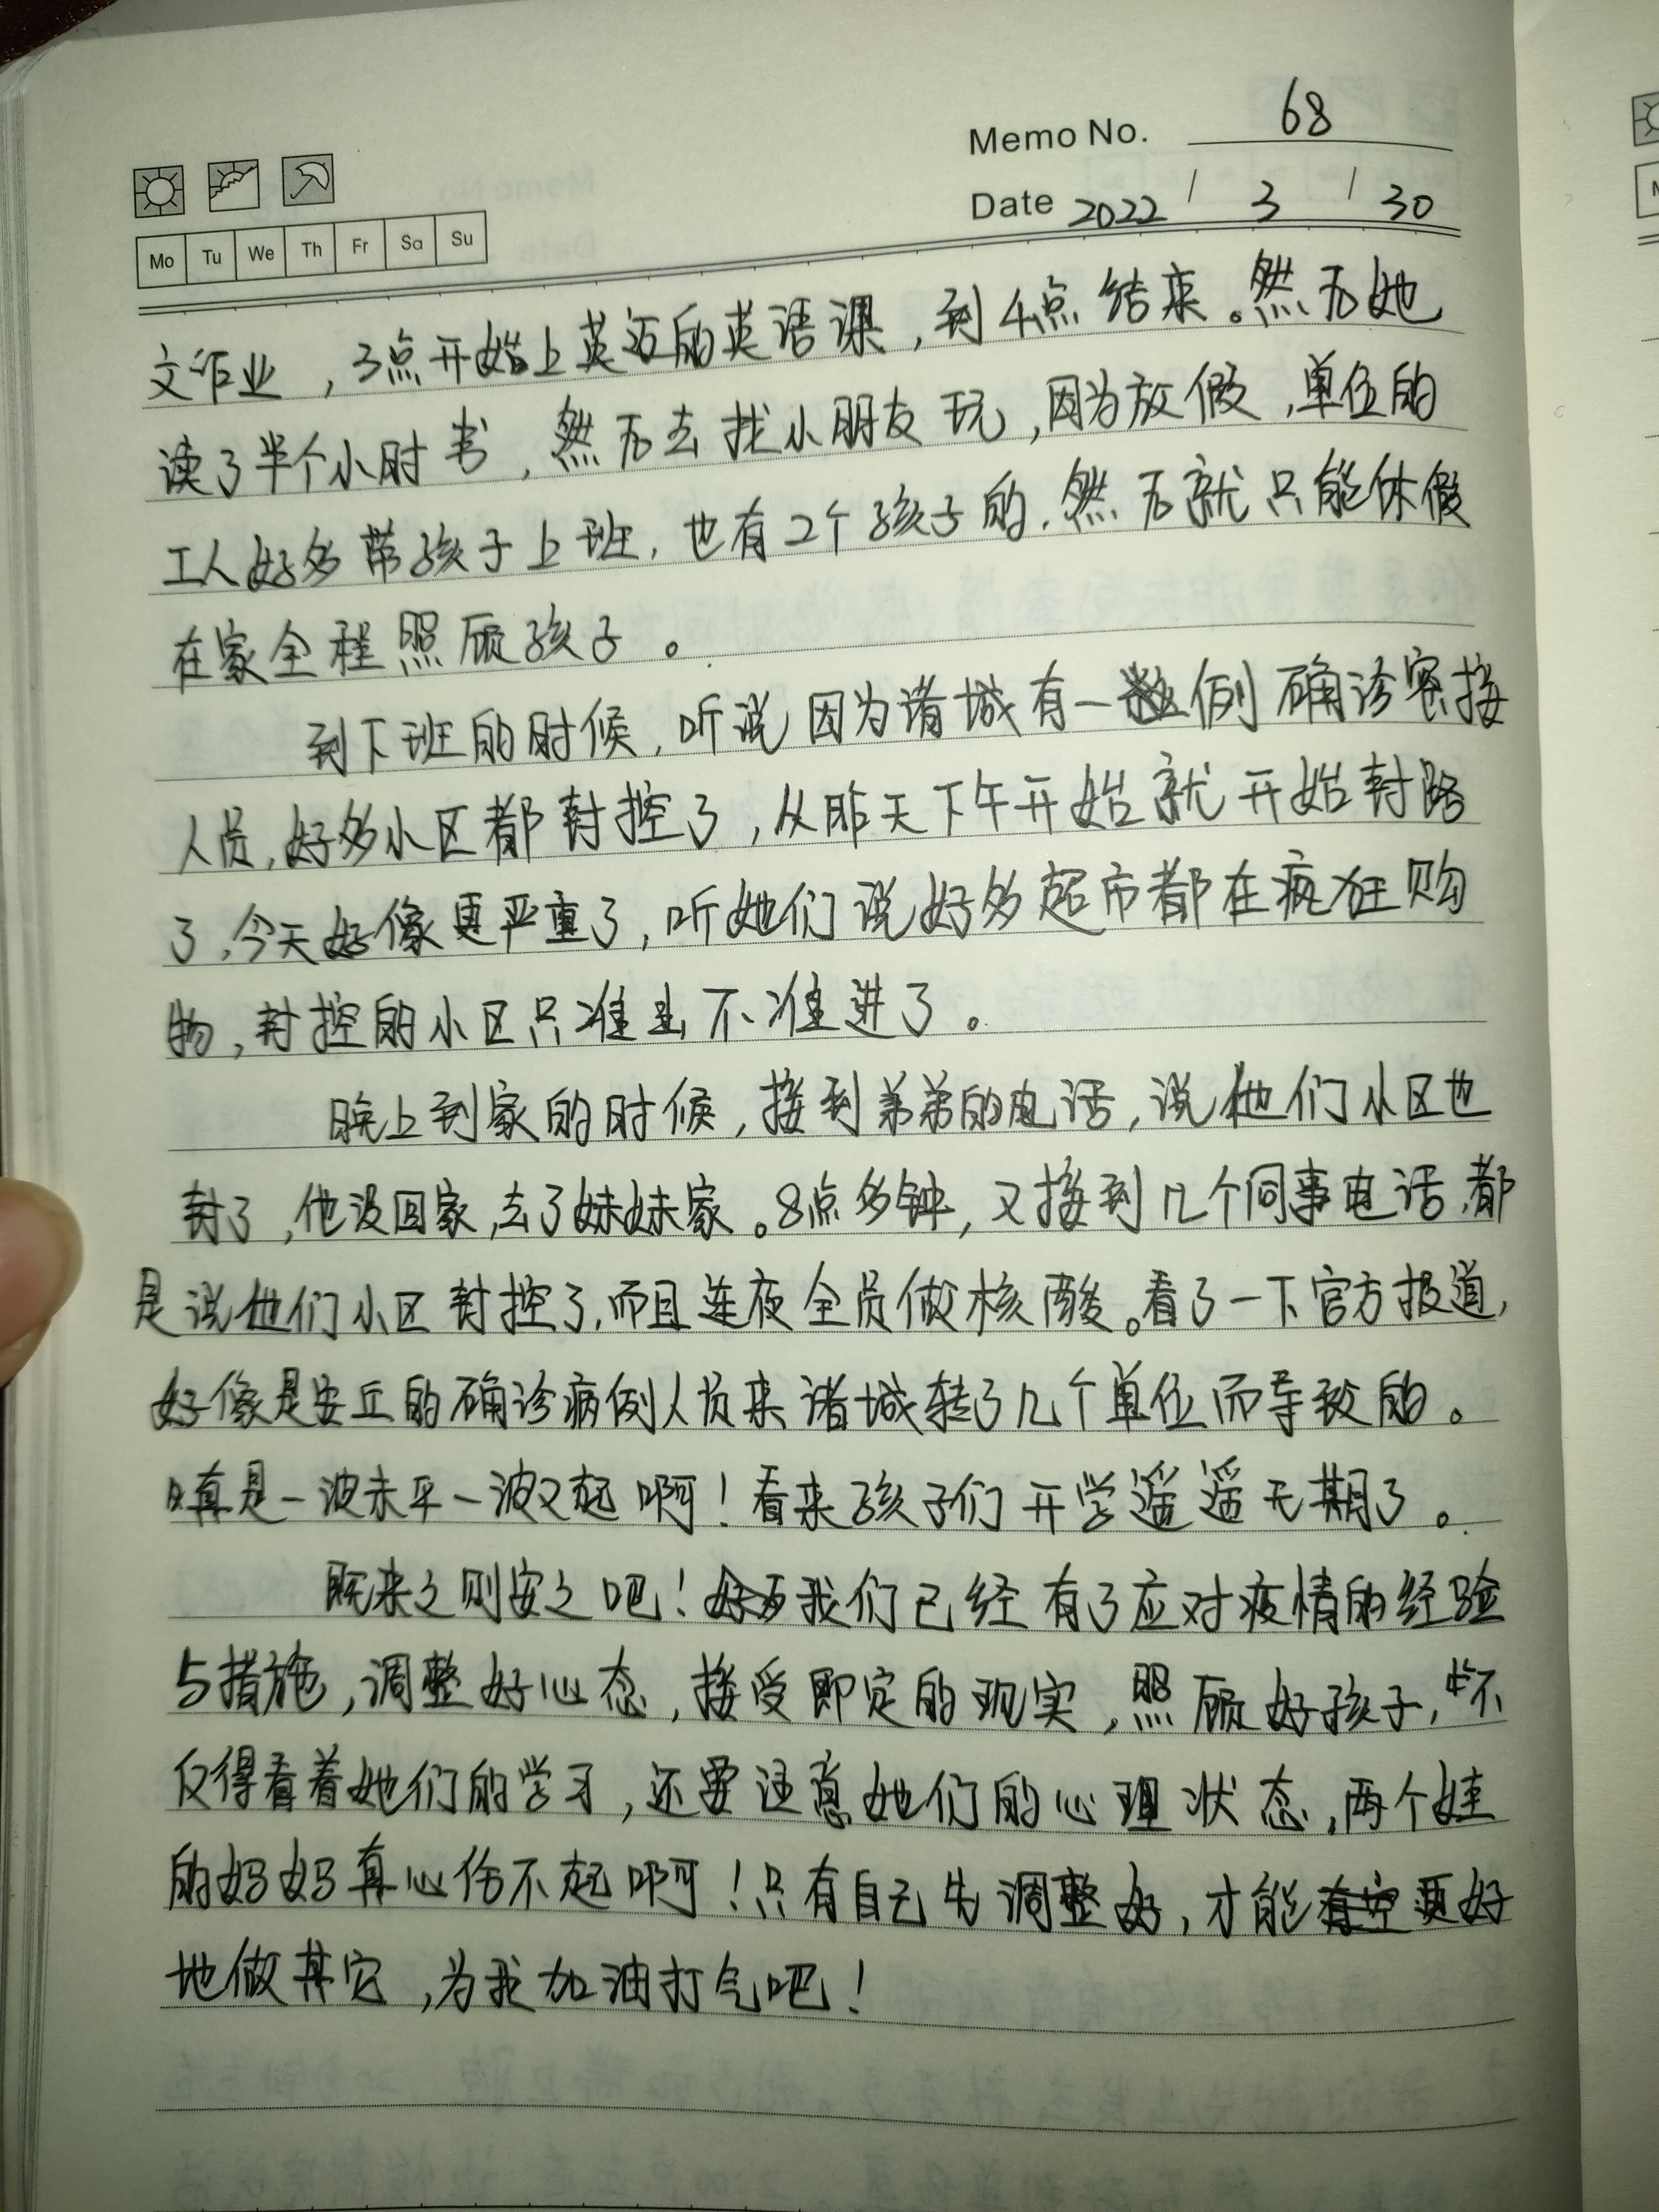 Memo No. 68
Mo Tu We Th Fr Sa Su
Date 2022 / 3 / 30
文作业，3点开始上英迈的英语课，到4点结束。然后她
读了半个小时书，然后去找小朋友玩，因为放假，单位的
工人好多带孩子上班，也有2个孩子的，然后就只能休假
在家全程照顾孩子。
到下班的时候，听说因为诸城有一例确诊密接
人员，好多小区都封控了，从昨天下午开始就开始封路
了，今天好像更严重了，听她们说好多超市都在疯狂购
物，封控的小区只准出不准进了。
晚上到家的时候，接到弟弟的电话，说他们小区也
封了，他没回家，去了妹妹家。8点多钟，又接到几个同事电话，都
是说他们小区封控了，而且连夜全员做核酸。看了一下官方报道，
好像是安丘的确诊病例人员来诸城转了几个单位而导致的。
真是一波未平一波又起啊！看来孩子们开学遥遥无期了。
既来之则安之吧！好在我们已经有了应对疫情的经验
与措施，调整好心态，接受即定的现实，照顾好孩子，不
仅得看着她们的学习，还要注意她们的心理状态，两个娃
的妈妈真心伤不起啊！只有自己先调整好，才能更好
地做其它，为我加油打气吧！